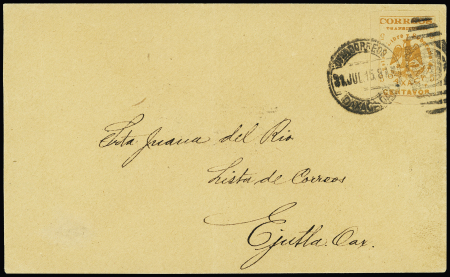 CORREOS
CENTAVOS
CORREOS
31. JUL. 15. 97
OAXACA
Srta Juana del Rio
Lista de Correos
Ejutla. Oax.